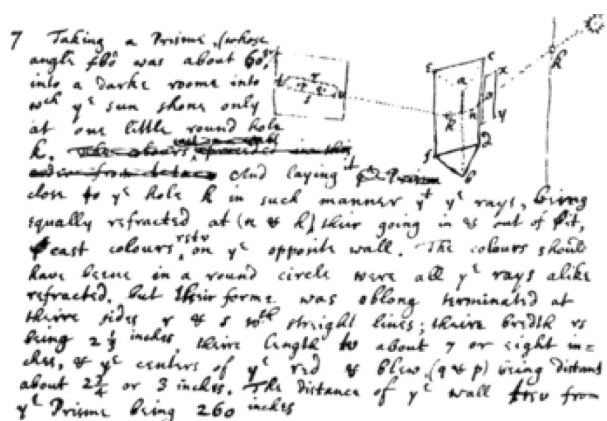 7 Taking a Prisme, (whose
angle fbd was about 60gr
into a darke roome into
wch ye sun shone only
at one little round hole
k. And laying it
close to ye hole k in such manner yt ye rays, being
equally refracted at (n & h) their going in & out of it,
cast colours rstv on ye opposite wall. The colours should
have beene in a round circle were all ye rays alike
refracted, but their forme was oblong terminated at
theire sides r & s wth streight lines; theire bredth rs
being 2 1/3 inches, theire length tv about 7 or eight in=
ches, & ye centers of ye red & blew, (q & p) being distant
about 2 3/4 or 3 inches. The distance of ye wall trsv from
ye Prisme being 260 inches